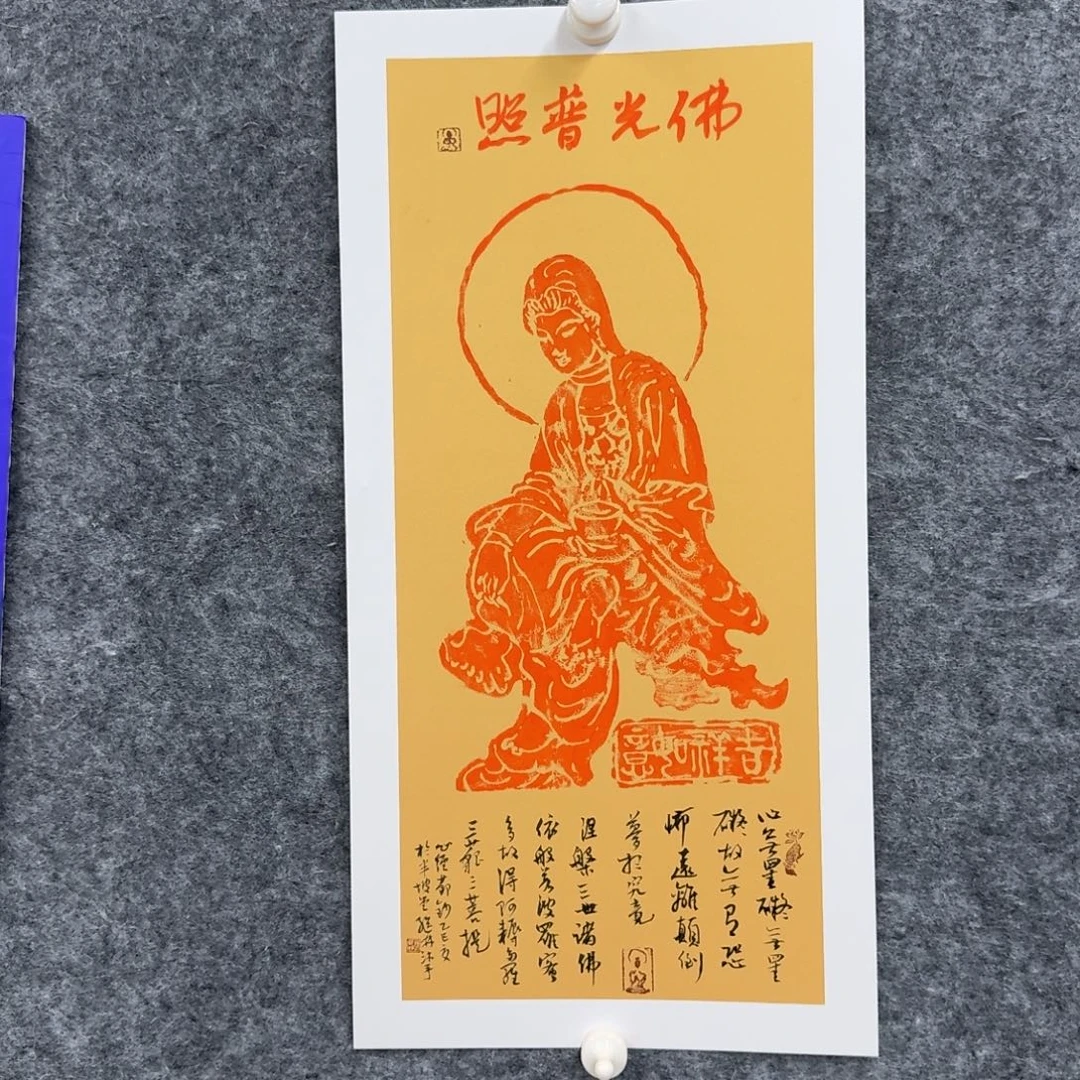 佛光普照
吉祥如意
心無罣礙無罣
礙故無有恐
怖遠離顛倒
夢想究竟
涅槃三世諸佛
依般若波羅蜜
多故得阿耨多羅
三藐三菩提
心經節鈔乙巳夏
於半坡堂沐手